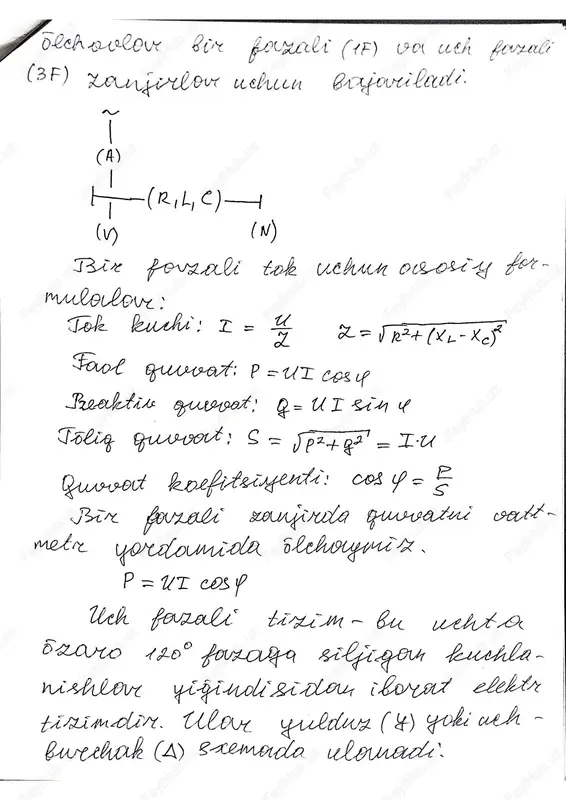 ölchovlar bir fazali (1F) va uch fazali
(3F) zanjirlar uchun bajariladi.
~
(A)
(R, L, C)
(V) (N)
Bir fazali tok uchun asosiy for-
mulalar:
Tok kuchi: I = U/Z Z = √R²+(XL-XC)²
Faol quvvat: P = UI cosφ
Reaktiv quvvat: q = UI sinφ
Töliq quvvat: S = √P²+q² = I·U
Quvvat koefitsiyenti: cosφ = P/S
Bir fazali zanjirda quvvatni vatt-
metr yordamida ölchaymiz.
P = UI cosφ
Uch fazali tizim - bu uchta
özaro 120° fazaga siljigan kuchla-
nishlar yiğindisidan iborat elektr
tizimdir. Ular yulduz (Y) yoki uch-
burchak (Δ) sxemada ulanadi.